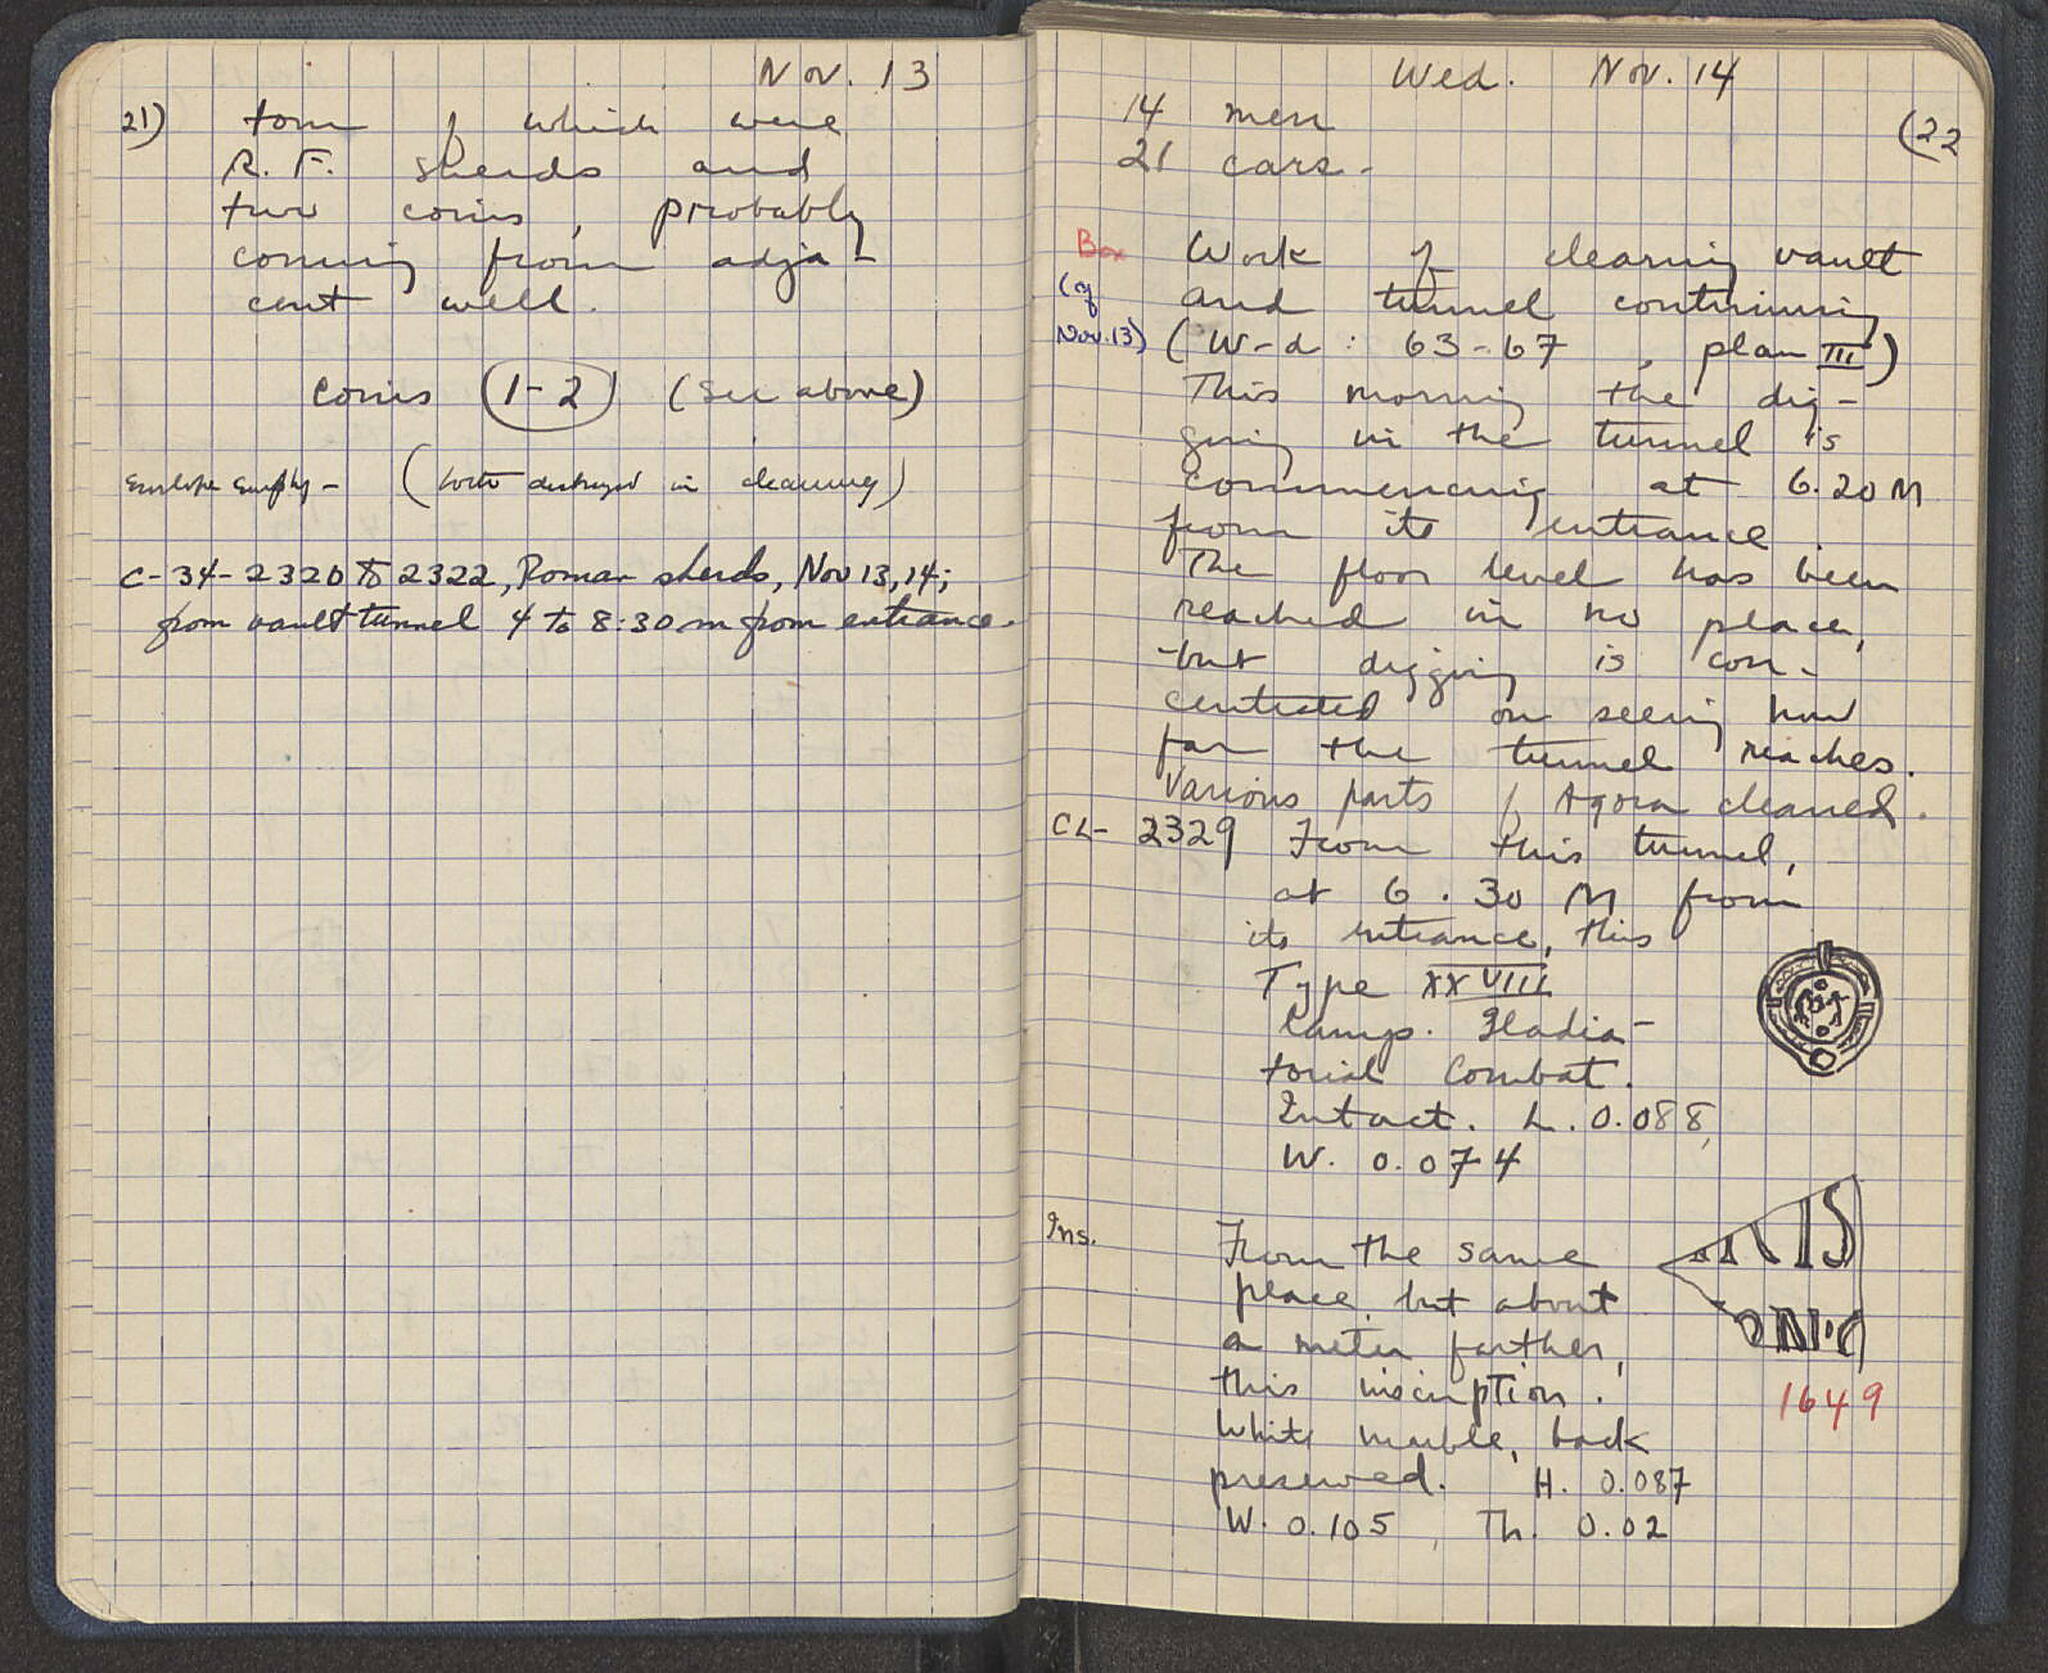 Nov. 13
21) tom of which were
R. F. sherds and
two coins, probably
coming from adja-
cent well.
Coins (1-2) (see above)
Envelope Empty - (both destroyed in cleaning)
C-34-2320 to 2322, Roman sherds, Nov 13, 14;
from vault tunnel 4 to 8:30 m from entrance.
Wed. Nov. 14
(22
14 men
21 cars.
Box
(of
Nov. 13)
Work of clearing vault
and tunnel continuing
(W-d: 63-67, plan III)
This morning the dig-
ging in the tunnel is
commencing at 6.20 M
from its entrance
The floor level has been
reached in no place,
but digging is con-
centrated on seeing how
far the tunnel reaches.
Various parts of Agora cleaned.
CL- 2329 From this tunnel,
at 6.30 M from
its entrance, this
Type XXVIII
lamp. Gladia-
torial Combat.
Intact. L. 0.088,
W. 0.074
Ins.
From the same
place, but about
a meter farther,
this inscription.
White marble, back
preserved. H. 0.087
W. 0.105, Th. 0.02
IS
ON
1649